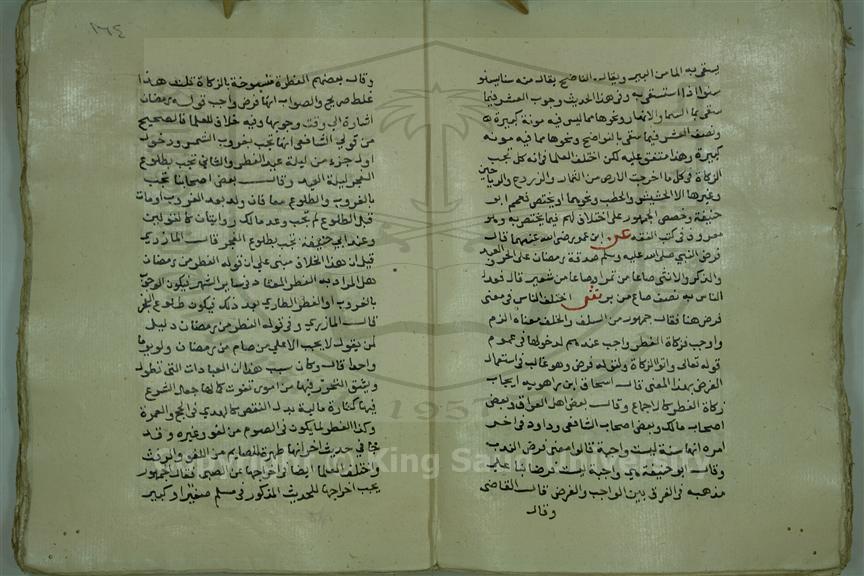 يستقى به الماء من البير ويقال الناضح يقال منه سنا يسنو
سنوا اذا استسقى به وفى هذا الحديث وجوب العشر فيما
سقى بماء السماء والانهار ونحوها مما ليس فيه مونة كبيرة
ونصف العشر فيما سقى بالنواضح ونحوها مما فيه مونه
كبيرة وهذا متفق عليه لكن اختلف العلما فى انه كل تجب
الزكاة فى كل ما اخرجت الارض من الثمار والزروع والرياحين
وغيرها الا الحشيش والحطب ونحوهما او يختص فعمم ابو
حنيفة وخصص الجمهور على اختلاف لهم فيما يختص به وهو
معروف فى كتب الفقه عن ابن عمر رضى الله عنهما قال
فرض النبي صلى الله عليه وسلم صدقة رمضان على الحر والعبد
والذكر والانثى صاعا من تمر او صاعا من شعير قال فعدل
الناس به نصف صاع من بر ش اختلف الناس فى معنى
فرض هنا فقال جمهور من السلف والخلف معناه الزم
واوجب فزكاة الفطر واجب عندهم لدخولها فى عموم
قوله تعالى واتوا الزكاة ولقوله فرض وهو غالب فى استعمال
الفرض بهذا المعنى قال اسحاق ابن راهويه ايجاب
زكاة الفطر كالاجماع وقال بعض اهل العراق وبعض
اصحاب مالك وبعض اصحاب الشافعى وداود فى اخر
امره انها سنة ليست واجبة قالوا معنى فرض الندب
وقال ابو حنيفة هى واجبة ليست فرضا بنا على
مذهبه فى الفرق بين الواجب والفرض قال القاضى
وقال
١٦٤
وقال بعضهم الفطرة منسوخة بالزكاة قلت هذا
غلط صريح والصواب انها فرض واجب قوله من رمضان
اشارة الى وقت وجوبها وفيه خلاف للعلما فالصحيح
من قولي الشافعى انها تجب بغروب الشمس ودخول
اول جزء من ليلة عيد الفطر والثانى تجب بطلوع
الفجر ليلة العيد وقال بعض اصحابنا تجب
بالغروب والطلوع معا فان ولد بعد الغروب او مات
قبل الطلوع لم تجب وعن مالك روايتان كالقولين
وعند ابى حنيفة تجب بطلوع الفجر قال المازرى
قيل ان هذا الخلاف مبنى على ان قوله الفطر من رمضان
هل المراد به الفطر المعتاد فى ساير الشهر فيكون الوجوب
بالغروب او الفطر الطارى بعد ذلك فيكون طلوع الفجر
قال المازرى وفى قوله الفطر من رمضان دليل
لمن يقول لا يجب الا على من صام من رمضان ولو يوما
واحدا قال وكان سبب هذا ان العبادات التى تطول
ويشق التحرز فيها من امور تفوت كمالها جعل الشرع
فيها كفارة مالية بدل النقص كالهدى فى الحج والعمرة
وكذا الفطر لما يكون فى الصوم من لغو وغيره وقد
جا فى حديث اخر انها طهرة للصايم من اللغو والرفث
واختلف العلما ايضا فى اخراجها عن الصبى فقال جمهور
يجب اخراجها للحديث المذكور فى مسلم صغير او كبير
1957
Copyright © King Saud University